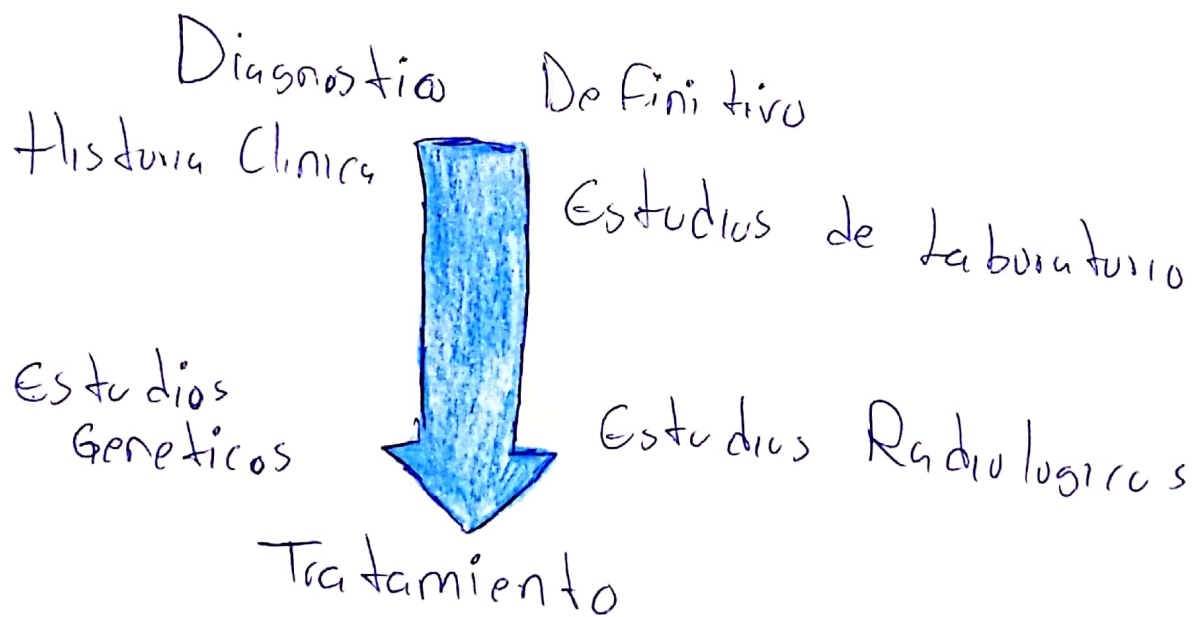 Diagnostico Definitivo
Historia Clinica
Estudios de Laboratorio
Estudios
Geneticos
Estudios Radiologicos
Tratamiento